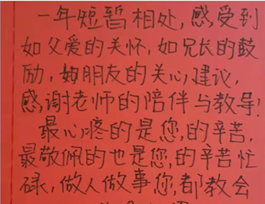 一年短暂相处,感受到
如父爱的关怀,如兄长的鼓
励,如朋友的关心,建议,
感谢老师的陪伴与教导!
最心疼的是您,的辛苦,
最敬佩的也是您,的辛苦忙
碌,做人做事您,都教会